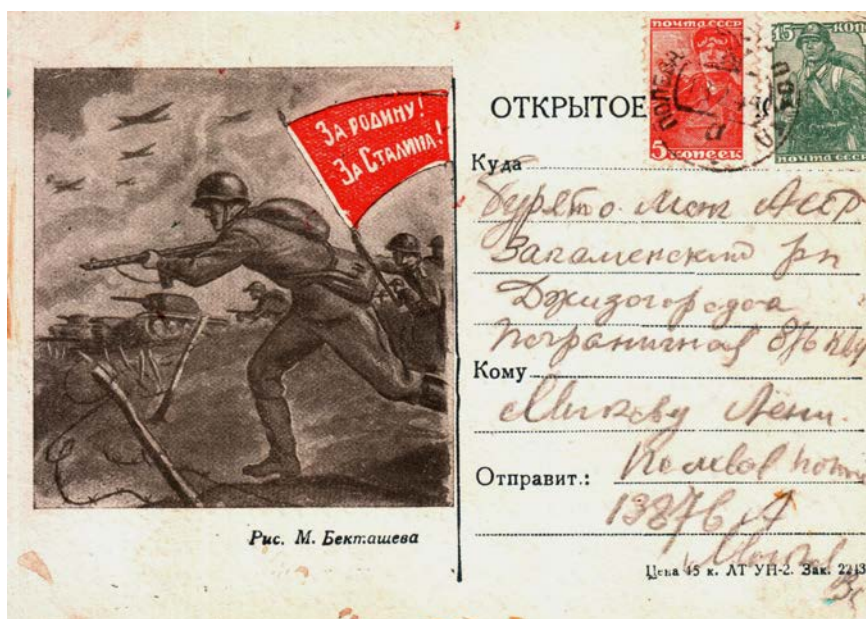 За родину!
За Сталина!
Рис. М. Бекташева
ОТКРЫТОЕ
почта ссср
5 копеек
15 коп
почта ссср
Куда
Бурято Монг АССР
Закаменский рн
Джидогородок
Пограничная 8/6 кв
Кому
Отправит.:
Полевая почта
13876 А
Цена 15 к. АТ УН-2. Зак. 2213